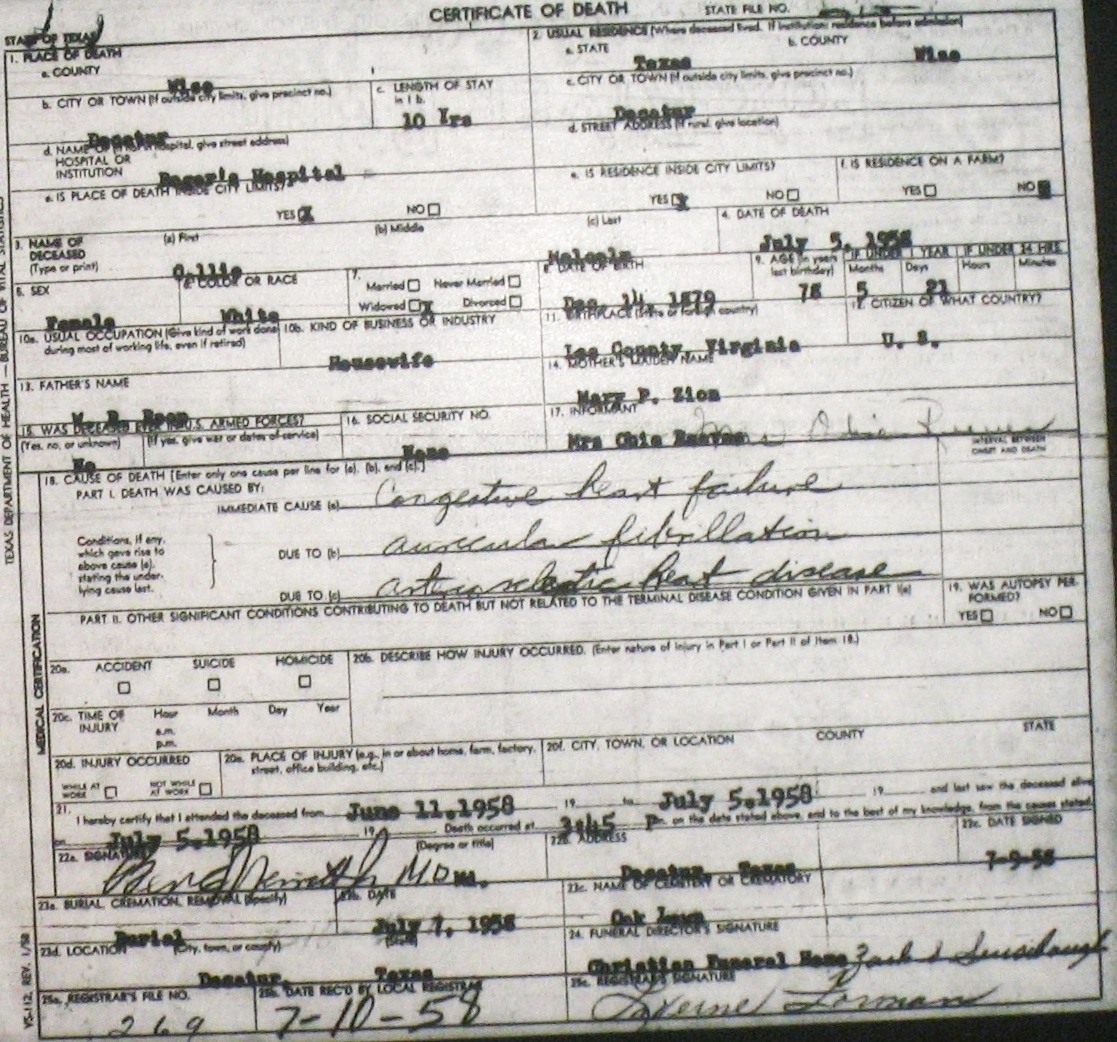 CERTIFICATE OF DEATH STATE FILE NO.
STATE OF TEXAS
1. PLACE OF DEATH
a. COUNTY
Wise
2. USUAL RESIDENCE (Where deceased lived. If institution: residence before admission)
a. STATE
Texas
b. COUNTY
Wise
b. CITY OR TOWN (If outside city limits, give precinct no.)
Decatur
c. LENGTH OF STAY in 1 b.
10 Yrs
c. CITY OR TOWN (If outside city limits, give precinct no.)
Decatur
d. NAME OF hospital, give street address)
HOSPITAL OR
INSTITUTION
Hospital
d. STREET ADDRESS (If rural, give location)
e. IS PLACE OF DEATH INSIDE CITY LIMITS?
YES X NO
e. IS RESIDENCE INSIDE CITY LIMITS?
YES X NO
f. IS RESIDENCE ON A FARM?
YES NO
3. NAME OF DECEASED
(Type or print)
(a) First
Ollie
(b) Middle
(c) Last
Malcolm
4. DATE OF DEATH
July 5, 1958
5. SEX
Female
6. COLOR OR RACE
White
7.
Married Never Married
Widowed X Divorced
8. DATE OF BIRTH
Dec. 14, 1879
9. AGE (In years last birthday)
78
IF UNDER 1 YEAR
Months Days
5 21
IF UNDER 24 HRS.
Hours Minutes
10a. USUAL OCCUPATION (Give kind of work done during most of working life, even if retired)
10b. KIND OF BUSINESS OR INDUSTRY
Housewife
11. BIRTHPLACE (State or foreign country)
Lee County, Virginia
12. CITIZEN OF WHAT COUNTRY?
U. S.
13. FATHER'S NAME
14. MOTHER'S MAIDEN NAME
Mary P. Zion
15. WAS DECEASED EVER IN U.S. ARMED FORCES?
(Yes, no, or unknown) (If yes, give war or dates of service)
No
16. SOCIAL SECURITY NO.
None
17. INFORMANT
Mrs Obie Reeves
Mrs Obie Reeves
INTERVAL BETWEEN ONSET AND DEATH
18. CAUSE OF DEATH [Enter only one cause per line for (a), (b), and (c).]
PART I. DEATH WAS CAUSED BY:
IMMEDIATE CAUSE (a) Congestive heart failure
Conditions, if any, which gave rise to above cause (a), stating the underlying cause last.
DUE TO (b) auricular fibrillation
DUE TO (c) arteriosclerotic heart disease
PART II. OTHER SIGNIFICANT CONDITIONS CONTRIBUTING TO DEATH BUT NOT RELATED TO THE TERMINAL DISEASE CONDITION GIVEN IN PART I(a)
19. WAS AUTOPSY PERFORMED?
YES NO
20a. ACCIDENT SUICIDE HOMICIDE
20b. DESCRIBE HOW INJURY OCCURRED. (Enter nature of injury in Part I or Part II of Item 18.)
20c. TIME OF INJURY
Hour Month Day Year
a.m.
p.m.
20d. INJURY OCCURRED
WHILE AT WORK NOT WHILE AT WORK
20e. PLACE OF INJURY (e.g., in or about home, farm, factory, street, office building, etc.)
20f. CITY, TOWN, OR LOCATION COUNTY STATE
21. I hereby certify that I attended the deceased from June 11,1958 19 to July 5,1958 19 and last saw the deceased alive
on July 5,1958 19 Death occurred at 3:45 P m. on the date stated above, and to the best of my knowledge, from the causes stated.
22a. SIGNATURE (Degree or title)
M.D. MD.
22b. ADDRESS
Decatur, Texas
22c. DATE SIGNED
7-9-58
23a. BURIAL, CREMATION, REMOVAL (Specify)
Burial
23b. DATE
July 7, 1958
23c. NAME OF CEMETERY OR CREMATORY
Oak Lawn
23d. LOCATION (City, town, or county) (State)
Decatur, Texas
24. FUNERAL DIRECTOR'S SIGNATURE
Christian Funeral Home
25a. REGISTRAR'S FILE NO.
269
25b. DATE REC'D BY LOCAL REGISTRAR
7-10-58
25c. REGISTRAR'S SIGNATURE
Forman
TEXAS DEPARTMENT OF HEALTH — BUREAU OF VITAL STATISTICS
MEDICAL CERTIFICATION
VS-112, REV. 1/58